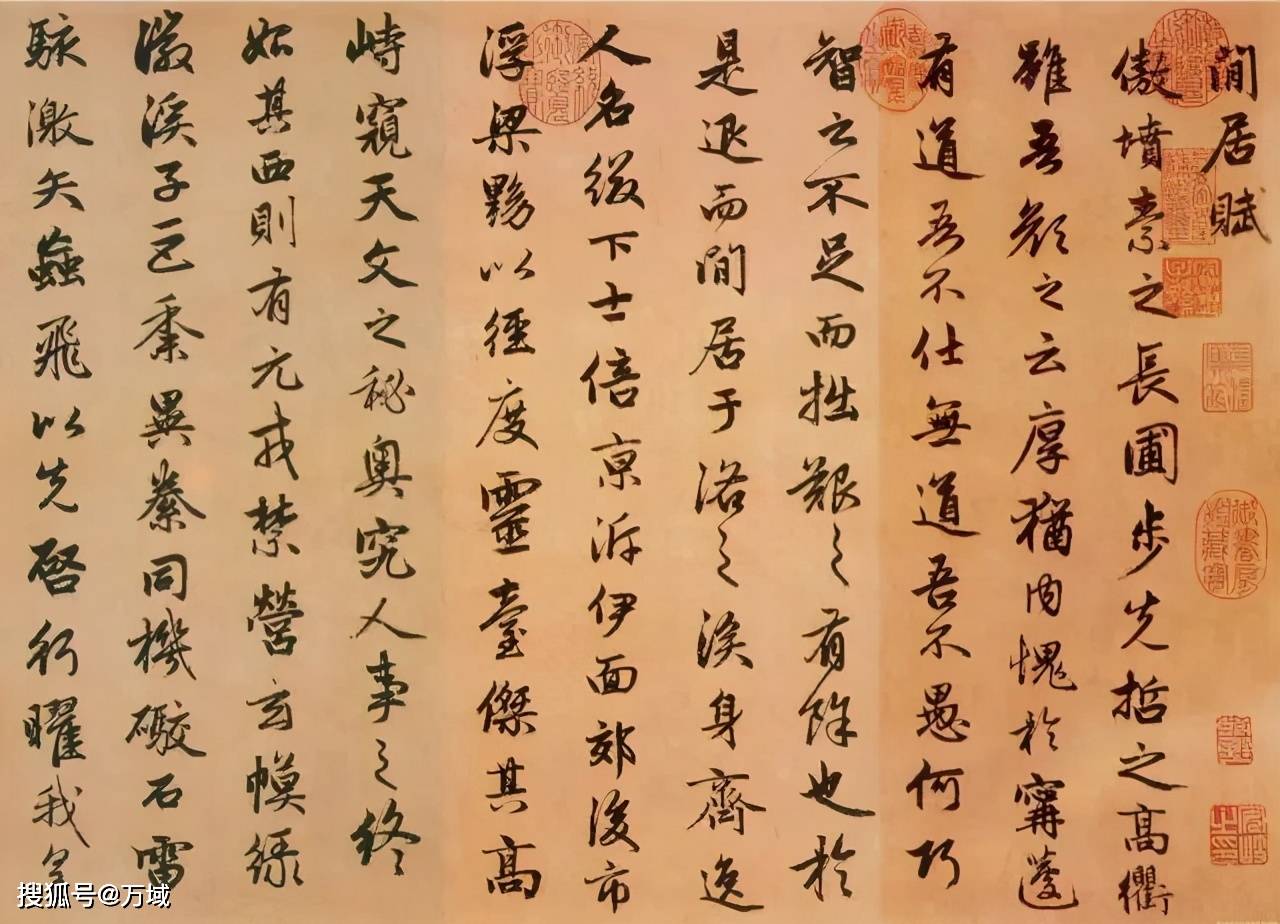 閒居賦
傲墳素之長圃步先哲之高衢
雖吾顏之云厚猶内愧於甯蘧
有道吾不仕無道吾不愚何巧
智之不足而拙艱之有餘也於
是退而閒居于洛之涘身齊逸
人名綴下士倍京泝伊面郊後市
浮梁黝以徑度靈臺傑其高
峙窺天文之秘奧究人事之終
始其西則有元戎禁營玄幙綠
徽溪子巨黍異絭同機礮石雷
駭激矢蝱飛以先啓行曜我皇
搜狐号@万域